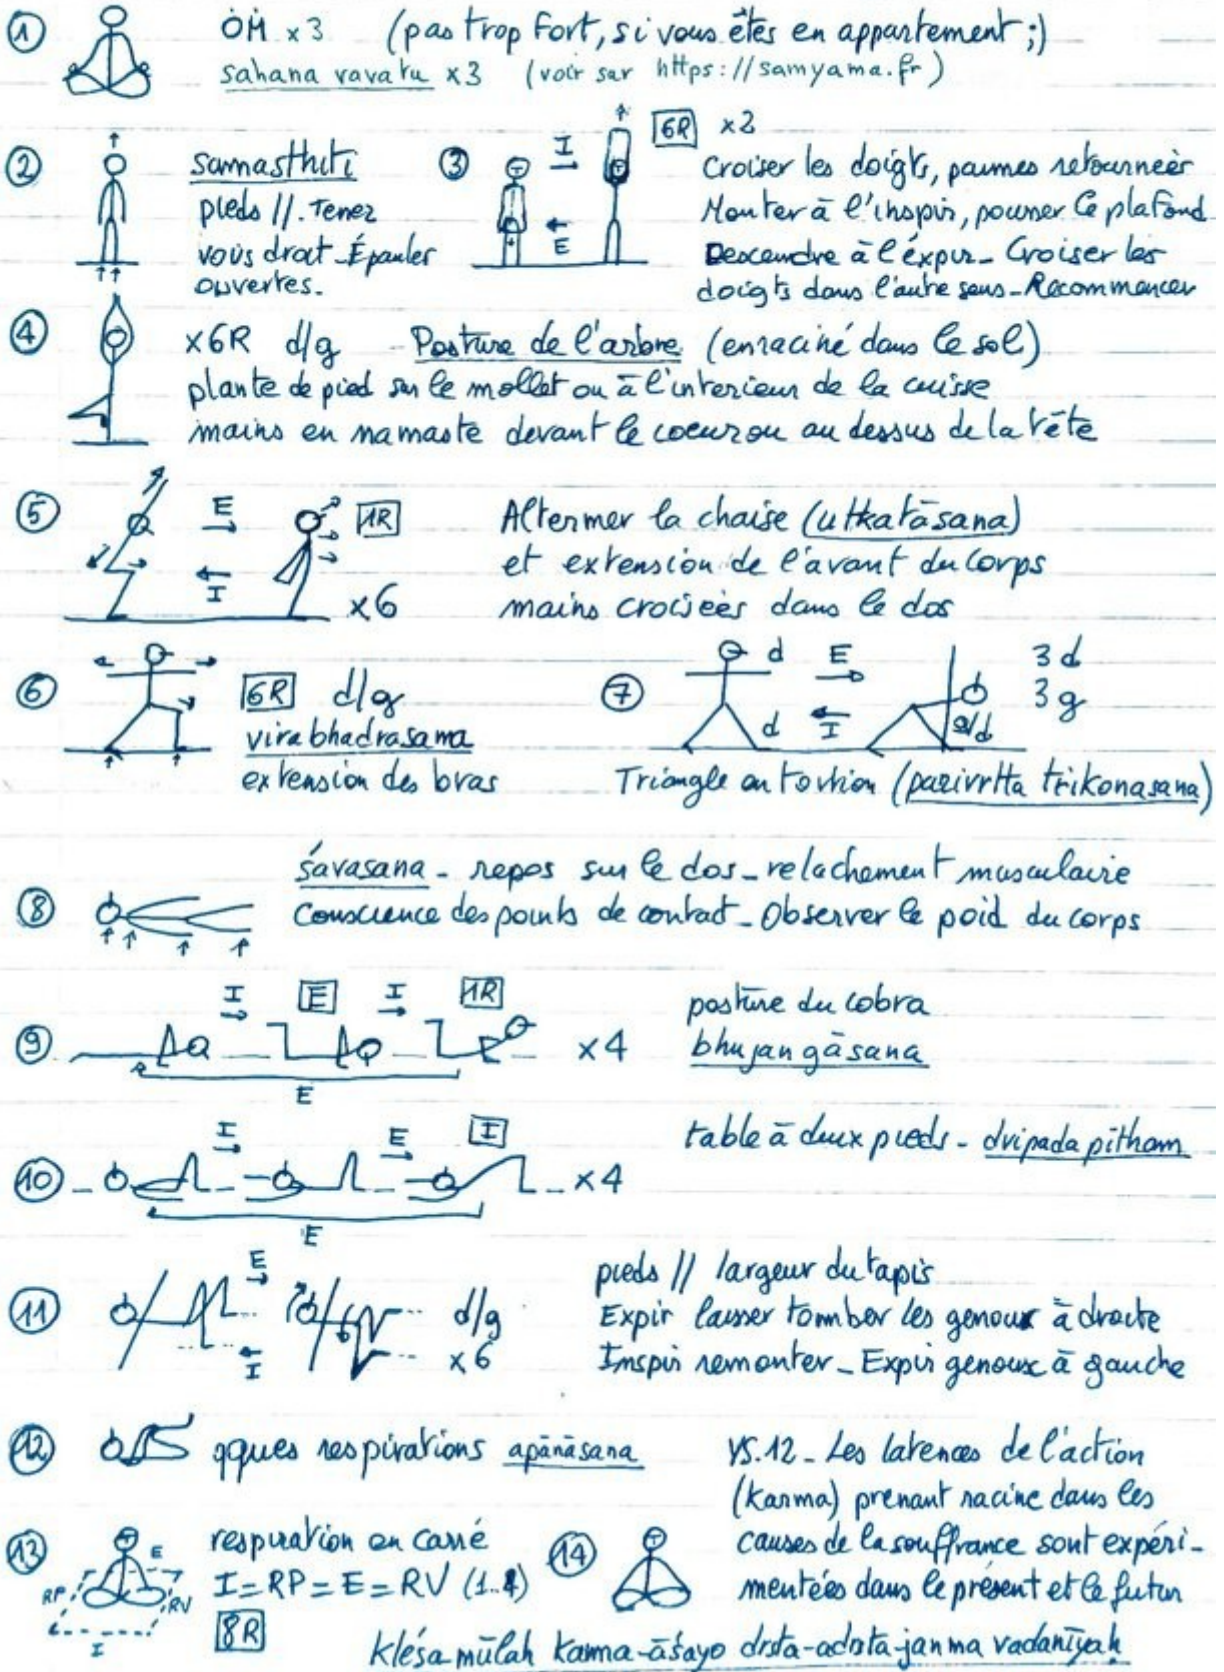 1 OM x 3 (pas trop fort, si vous êtes en appartement ;)
sahana vavatu x3 (voir sur https://samyama.fr)
2 samasthiti
pieds //. Tenez
vous droit - Épaules
ouvertes.
3 I E 6R x2
Croiser les doigts, paumes retournées
Monter à l'inspir, pousser le plafond
Descendre à l'éxpir - Croiser les
doigts dans l'autre sens - Recommencer
4 x6R d/g Posture de l'arbre (enraciné dans le sol)
plante de pied sur le mollet ou à l'interieur de la cuisse
mains en namaste devant le coeur ou au dessus de la tête
5 E I 1R x6
Alterner la chaise (utkatāsana)
et extension de l'avant du corps
mains croiseés dans le dos
6 6R d/g
virabhadrasana
extension des bras
7 d d E I g/d 3d
3g
Triangle en tortion (parivrtta trikonasana)
8 śavasana - repos sur le dos - relachement musculaire
Conscience des points de contact - Observer le poid du corps
9 I E I 1R E x4
posture du cobra
bhujangāsana
10 I E I E x4
table à deux pieds - dvipada pitham
11 E I d/g
x6
pieds // largeur du tapis
Expir laisser tomber les genoux à droite
Inspir remonter - Expir genoux à gauche
12 qques respirations apānāsana
13 E RP RV I
respiration en carré
I = RP = E = RV (1..4)
8R
14 YS.12 - Les latences de l'action
(karma) prenant racine dans les
causes de la souffrance sont expéri-
mentées dans le présent et le futur
kléśa-mūlah karma-āśayo drsta-adrsta-janma vadanīyah